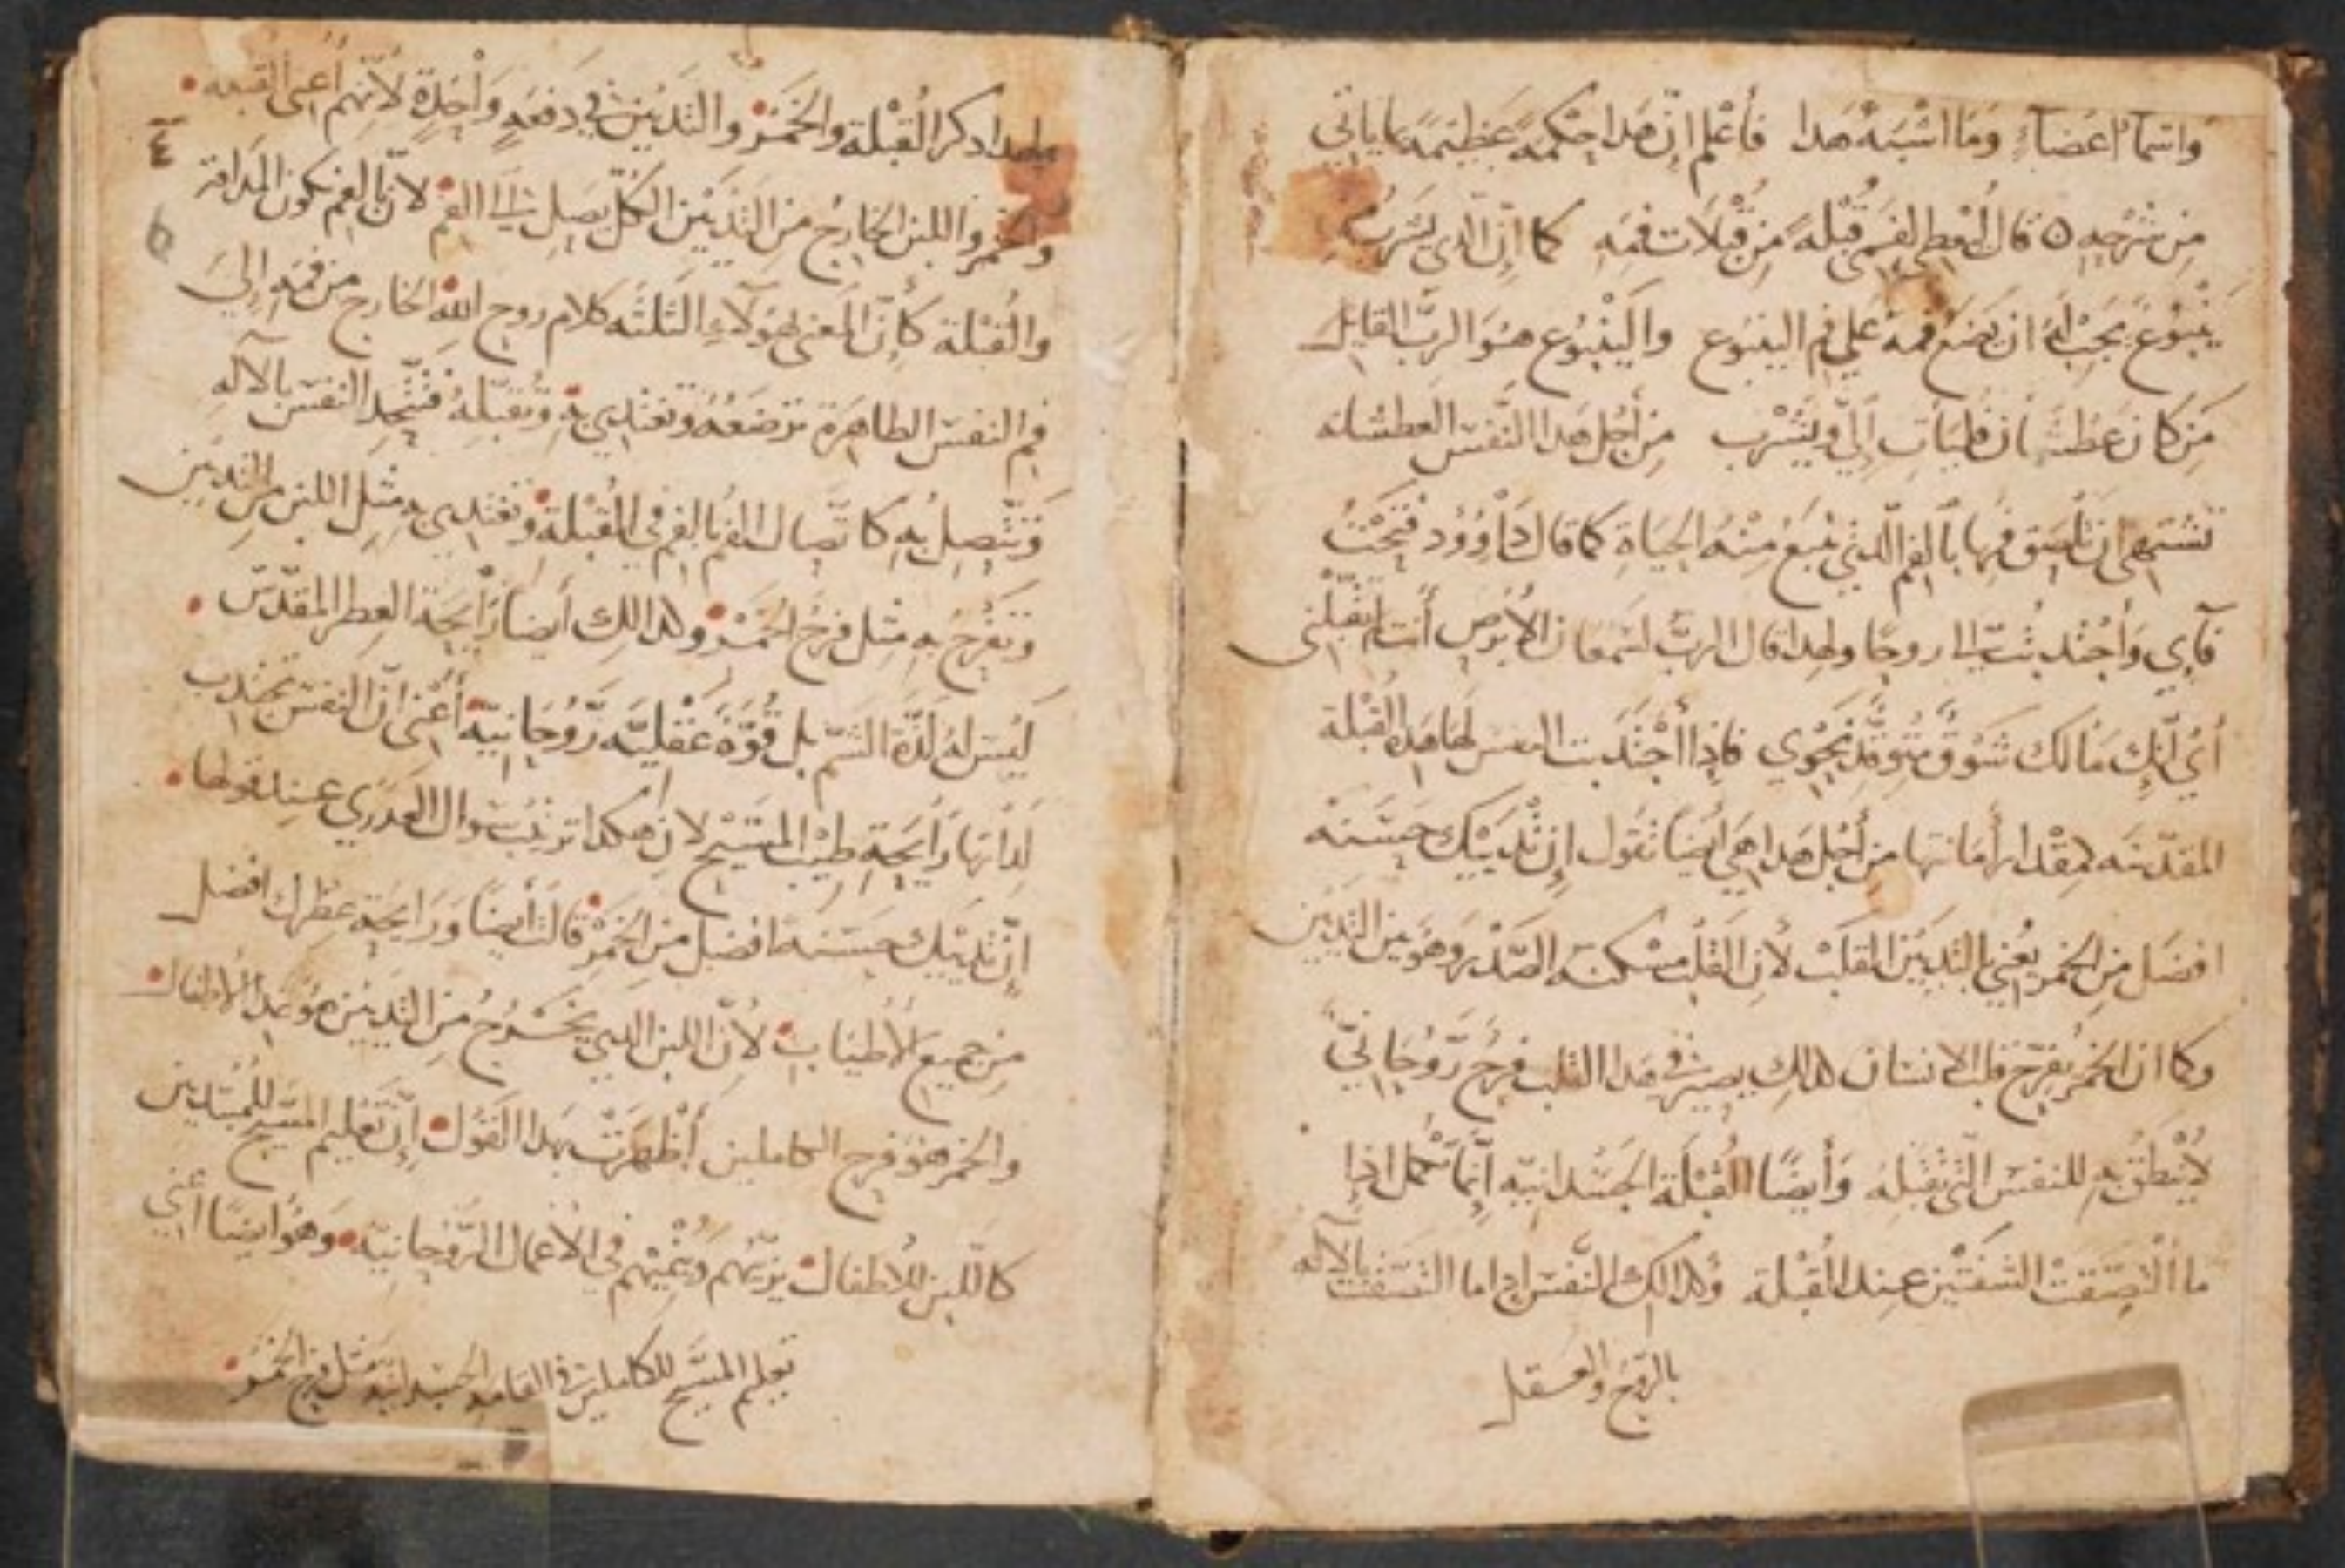 واسما اعضاء وما اشبه هدا فاعلم ان هدا حكمه عظيمه كما ياتي
من شرحه ٥ قال ليعطي لفمي قبله من قبلات فمه كما ان الدي يشرب من
ينبوع يجب له ان يضع فمه علي فم الينبوع والينبوع هو الرب القايل
من كان عطشان فليات الي ويشرب من اجل هدا النفس العطشانه
تشتهي ان تلصق فمها بالفم الدي نبع منه الحياة كما قال داوود فتحت
فاي واجتدبت لي روحا ولهدا قال الرب لسمعان الابرص انت لم تقبلني
اي انك ما لك شوق متوقد نحوي فادا اجتدبت النفس لها هده القبلة
المقدسه بمقدار امانتها من اجل هدا هي ايضا تقول ان ثدييك حسنه
افضل من الخمر يعني بالثديين القلب لان القلب مسكنه الصدر وهو بين الثديين
وكما ان الخمر يفرح قلب الانسان كدالك يصير في هدا القلب فرح روحاني
لا ينطق به للنفس التي تقبله وايضا القبلة الجسدانيه انما تكمل ادا
ما التصقت الشفتين عند القبلة وكدالك النفس ادا ما التصقت بالاله
بالروح والعقل
٤
ولهدا دكر القبلة والخمر والثديين في دفعه واحدة لانهم اعني القبله
والخمر واللبن الخارج من الثديين الكل يصل الي الفم لان بالفم تكون المداقة
والقبلة كان المعني لهولاء الثلثه كلام روح الله الخارج من فمه الي
فم النفس الطاهرة ترضعه وتغتدي به وتقبله فتتحد النفس بالاله
وتتصل به كاتصال الفم بالفم في القبلة وتغتدي به مثل اللبن من الثديين
وتفرح به مثل فرح الخمر وكدالك ايضا رايحة العطر المقدس
ليس له لدة الشم بل قوة عقليه روحانية اعني ان النفس تجتدب
لداتها رايحة طيب المسيح لان هكدا ترتيب سوال العدري عند قولها
ان ثدييك حسنه افضل من الخمر قالت ايضا ورايحة عطرك افضل
من جميع الاطياب لان اللبن الدي يخرج من الثديين هو غدا الاطفال
والخمر هو فرح الكاملين اظهرت بهدا القول ان تعليم المسيح للمبتديين
كاللبن للاطفال يربيهم وينميهم في الاعمال الروحانية وهو ايضا اعني
تعليم المسيح للكاملين في القامه الجسدانيه مثل فرح الخمر